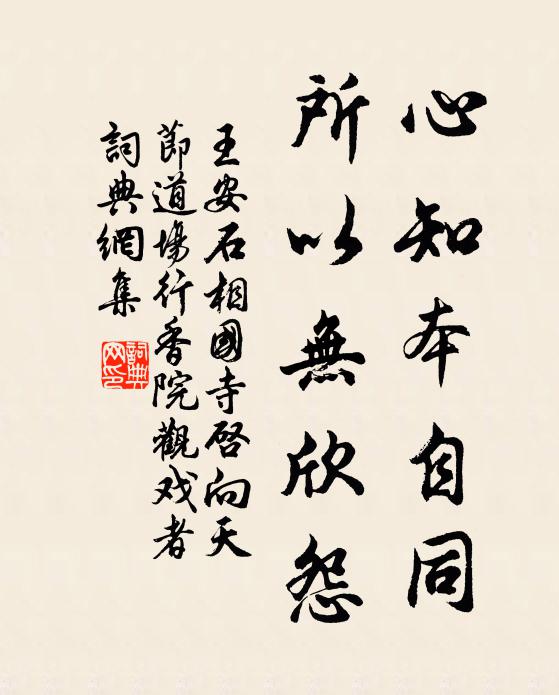 心知本自同
所以無欣怨
王安石相國寺啓向天
節道場行香院觀戏者
詞典網集
詞典網印